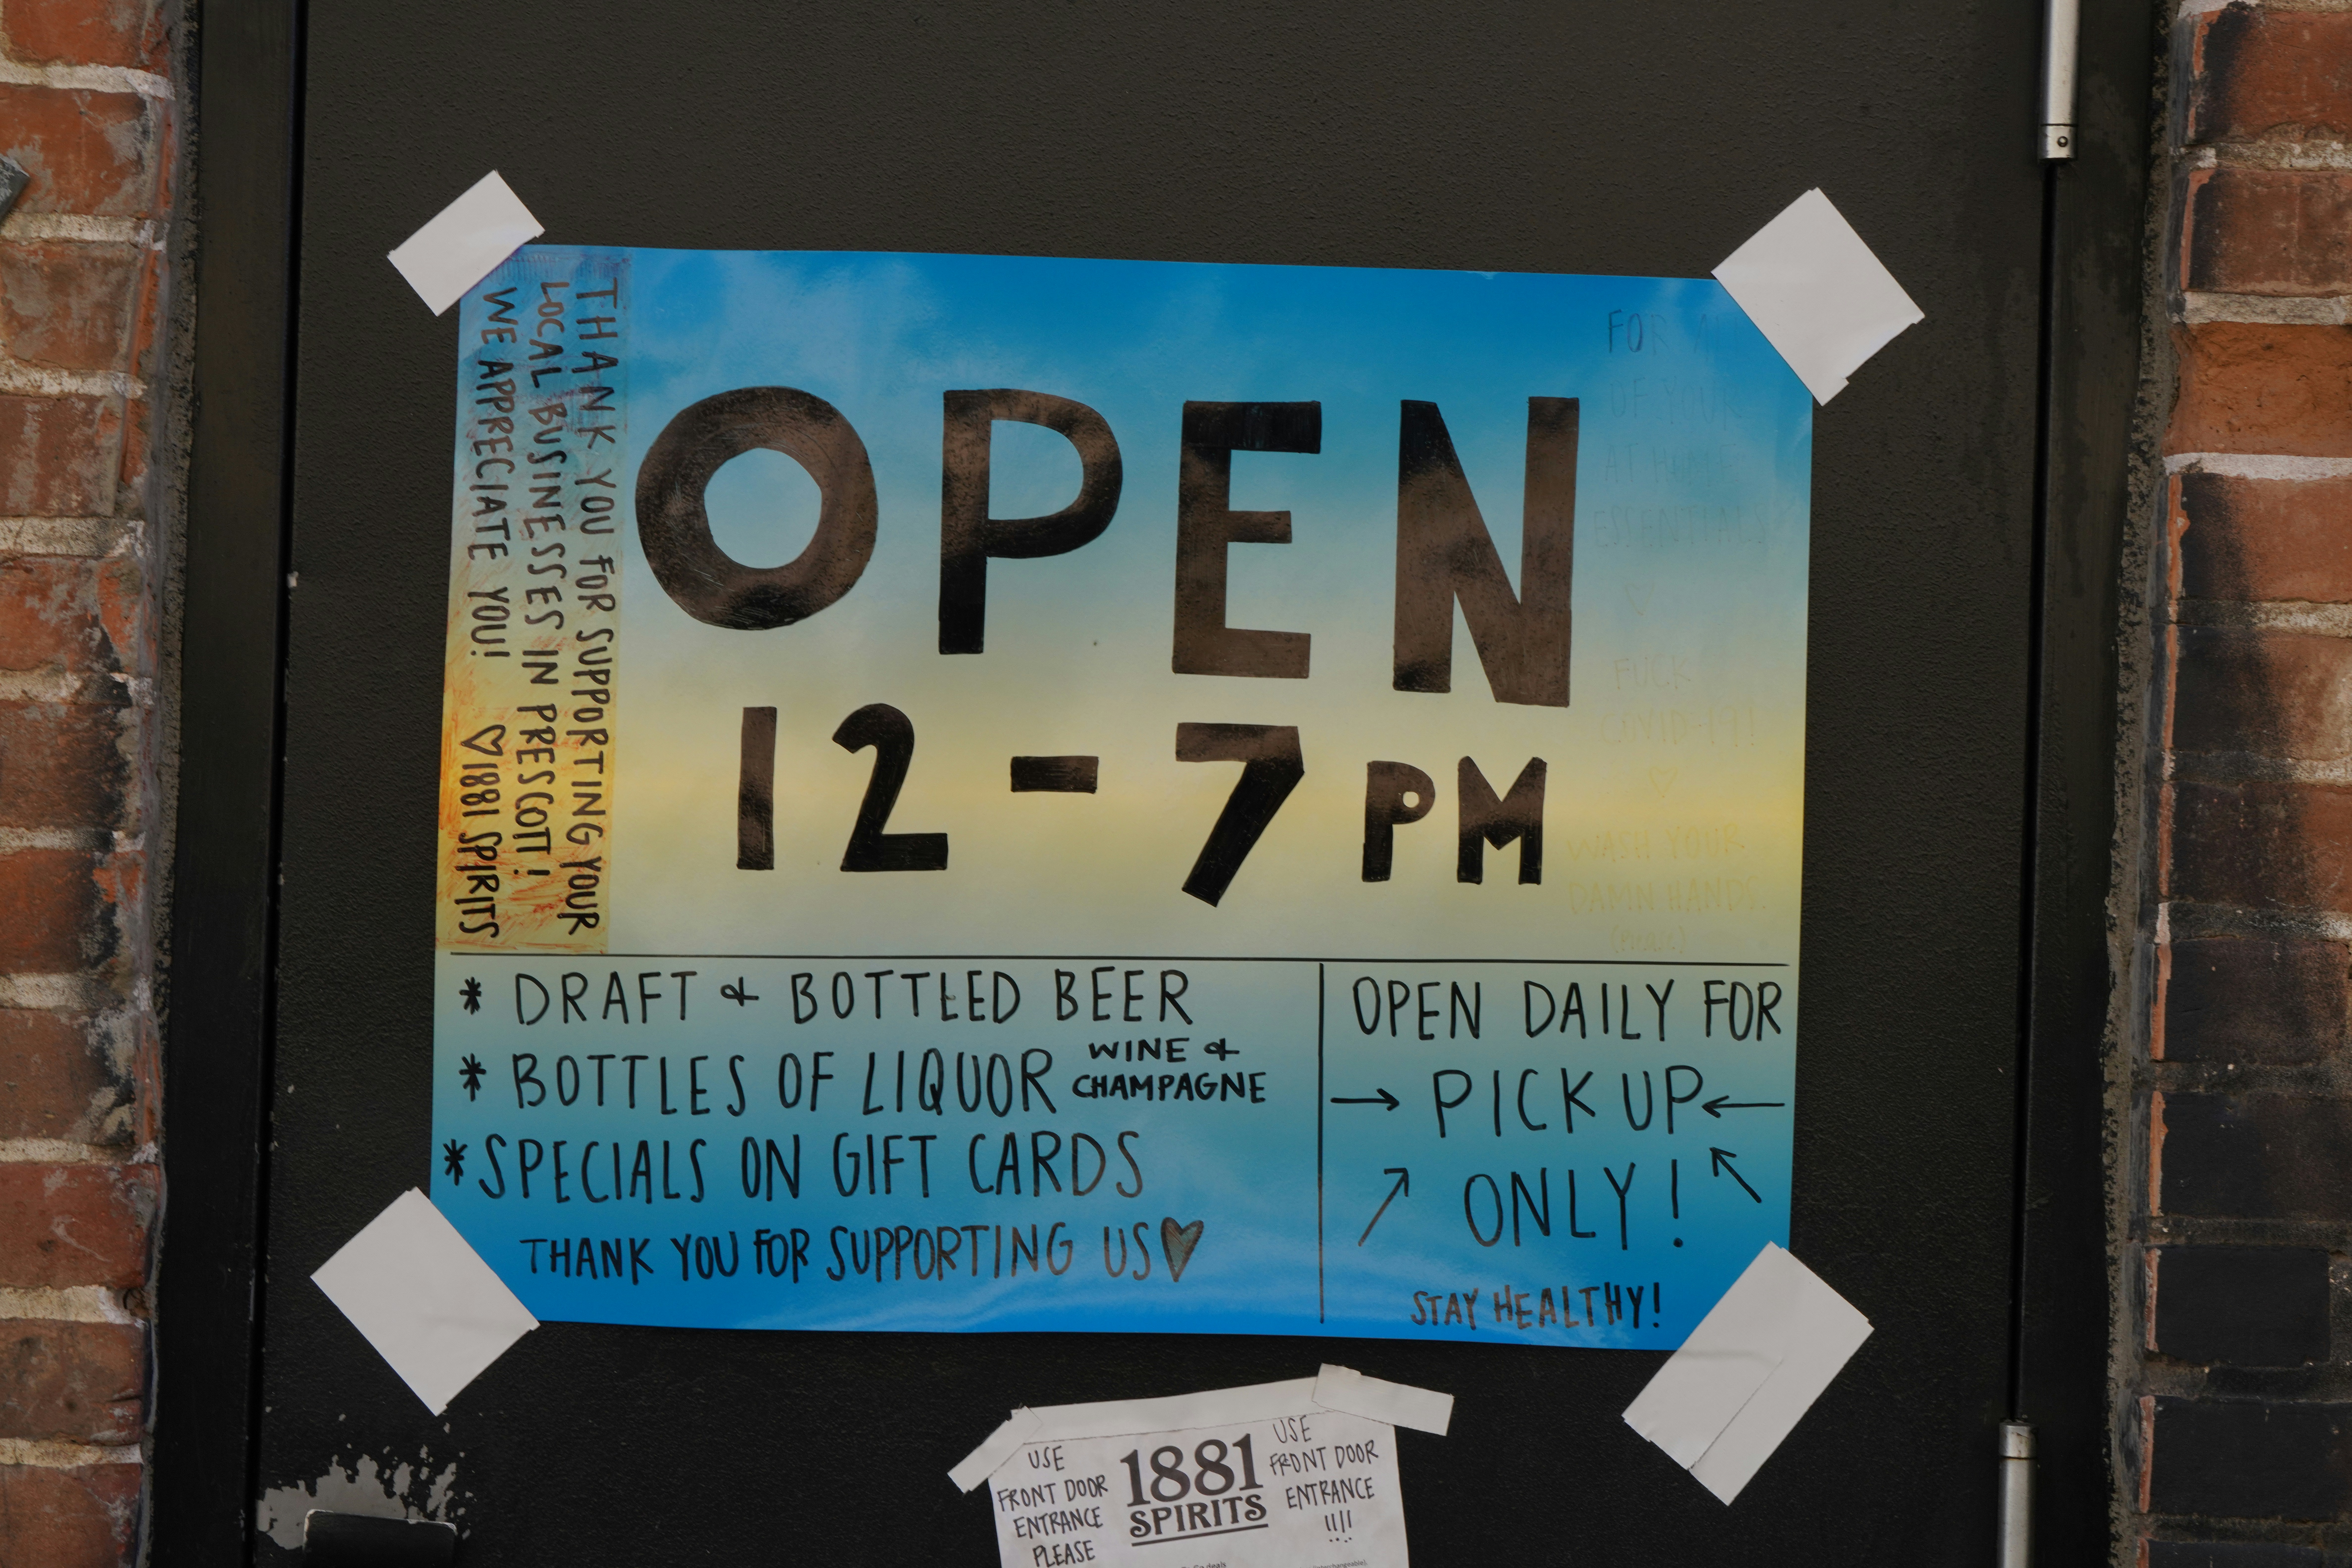 THANK YOU FOR SUPPORTING YOUR
LOCAL BUSINESSES IN PRESCOTT!
WE APPRECIATE YOU! ♡1881 SPIRITS
OPEN
12-7 PM
FOR
OF YOUR
AT HOME
ESSENTIALS
♡
FUCK
COVID-19!
♡
WASH YOUR
DAMN HANDS.
(PLEASE)
* DRAFT & BOTTLED BEER
* BOTTLES OF LIQUOR WINE & CHAMPAGNE
* SPECIALS ON GIFT CARDS
THANK YOU FOR SUPPORTING US♥
OPEN DAILY FOR
→ PICK UP ←
↗ ONLY! ↖
STAY HEALTHY!
USE
FRONT DOOR
ENTRANCE
PLEASE
1881
SPIRITS
USE
FRONT DOOR
ENTRANCE
!!!!